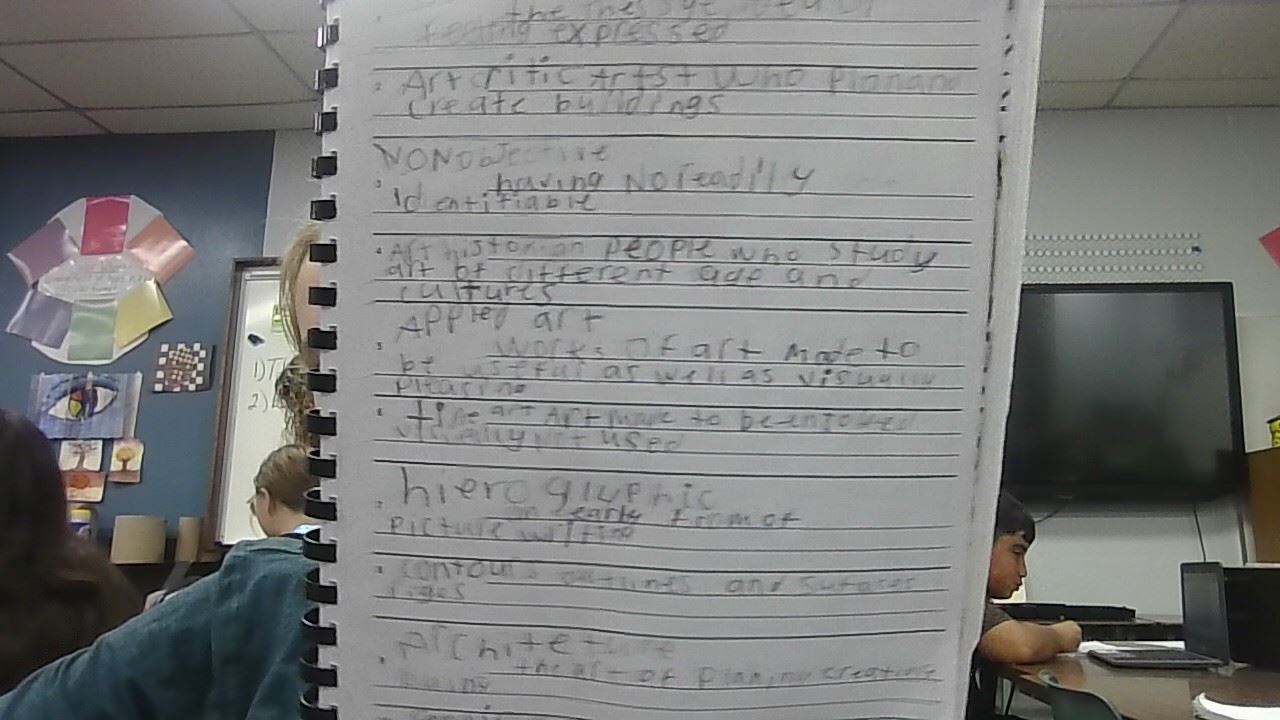 the message idea or
feeling expressed
Art critic Artst who planand
create buildings
NONObjective
having No readily
identifiable
Art historian people who study
art of different age and
cultures
Applied art
works of art made to
be useful as well as visually
pleasing
fine art Art made to be enjoyed
visually not used
hieroglyphic
an early form of
picture writing
contours outlines and surfaces
riges
architeture
the art of planing creating
1)
2)